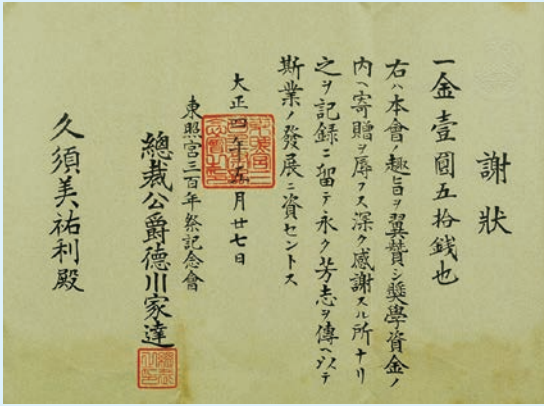 謝狀
一金壹圓五拾錢也
右ハ本會ノ趣旨ヲ翼賛シ奬學資金ノ
内ヘ寄贈ヲ辱フス深ク感謝スル所ナリ
之ヲ記録ニ留テ永ク芳志ヲ傳ヘ以テ
斯業ノ發展ニ資セントス
大正四年五月廿七日
東照宮三百年祭記念會
總裁公爵德川家達
久須美祐利殿